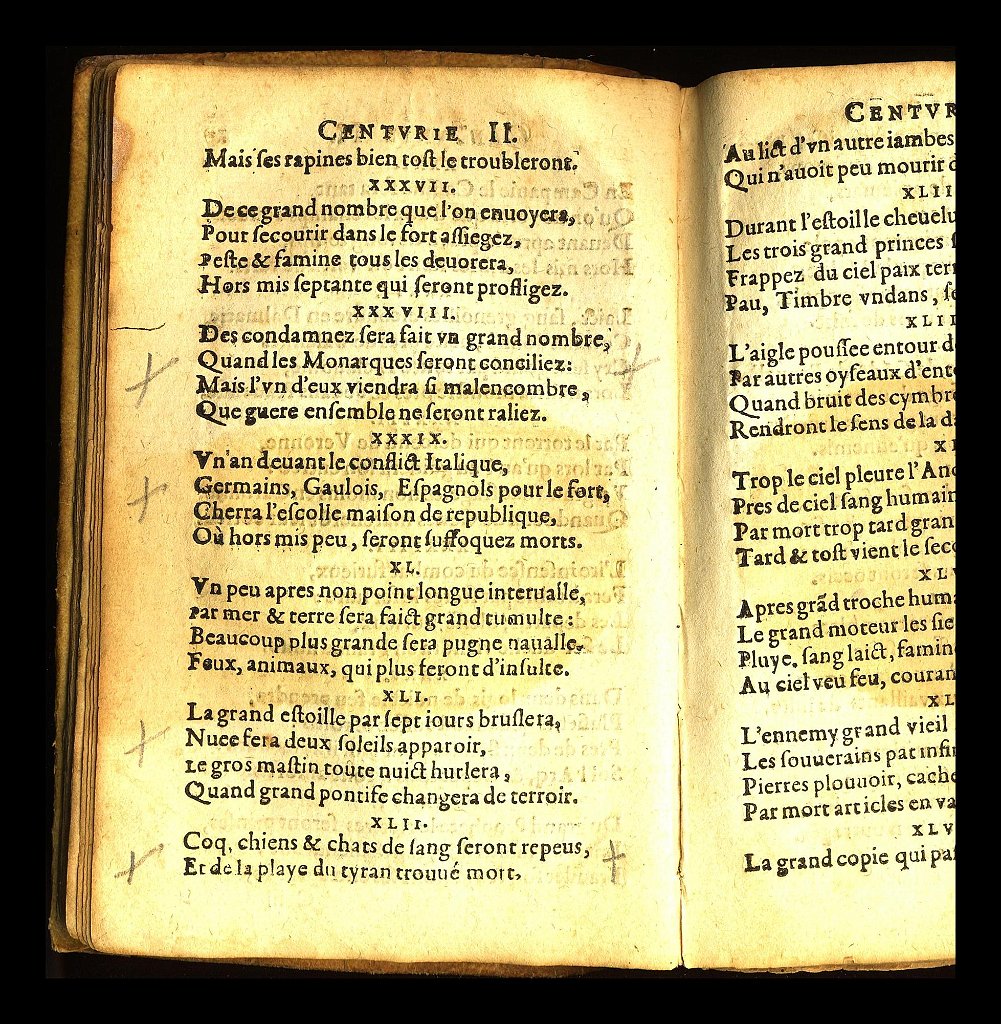 CENTVRIE II.
Mais ſes rapines bien toſt le troubleront.
XXXVII.
De ce grand nombre que l'on enuoyera,
Pour ſecourir dans le fort aſſiegez,
Peſte & famine tous les deuorera,
Hors mis ſeptante qui ſeront profligez.
XXXVIII.
Des condamnez ſera fait vn grand nombre,
Quand les Monarques ſeront conciliez:
Mais l'vn d'eux viendra ſi malencombre,
Que guere enſemble ne ſeront raliez.
XXXIX.
Vn an deuant le conflict Italique,
Germains, Gaulois, Eſpagnols pour le fort,
Cherra l'eſcolle maiſon de republique,
Où hors mis peu, ſeront ſuffoquez morts.
XL.
Vn peu apres non point longue interualle,
Par mer & terre ſera faict grand tumulte:
Beaucoup plus grande ſera pugne naualle,
Feux, animaux, qui plus feront d'inſulte.
XLI.
La grand eſtoille par ſept iours bruſlera,
Nuee fera deux ſoleils apparoir,
Le gros maſtin toute nuict hurlera,
Quand grand pontife changera de terroir.
XLII.
Coq, chiens & chats de ſang ſeront repeus,
Et de la playe du tyran trouué mort,
CENTVR
Au lict d'vn autre iambes
Qui n'auoit peu mourir
XLII
Durant l'eſtoille cheuelu
Les trois grand princes
Frappez du ciel paix terr
Pau, Timbre vndans,
XLII
L'aigle pouſſee entour
Par autres oyſeaux d'ent
Quand bruit des cymbr
Rendront le ſens de la
X
Trop le ciel pleure l'An
Pres de ciel ſang humain
Par mort trop tard gran
Tard & toſt vient le ſec
XL
Apres grãd troche hum
Le grand moteur les ſie
Pluye, ſang laict, famin
Au ciel veu feu, couran
XL
L'ennemy grand vieil
Les ſouuerains par infi
Pierres plouuoir, cache
Par mort articles en va
XLV
La grand copie qui pa